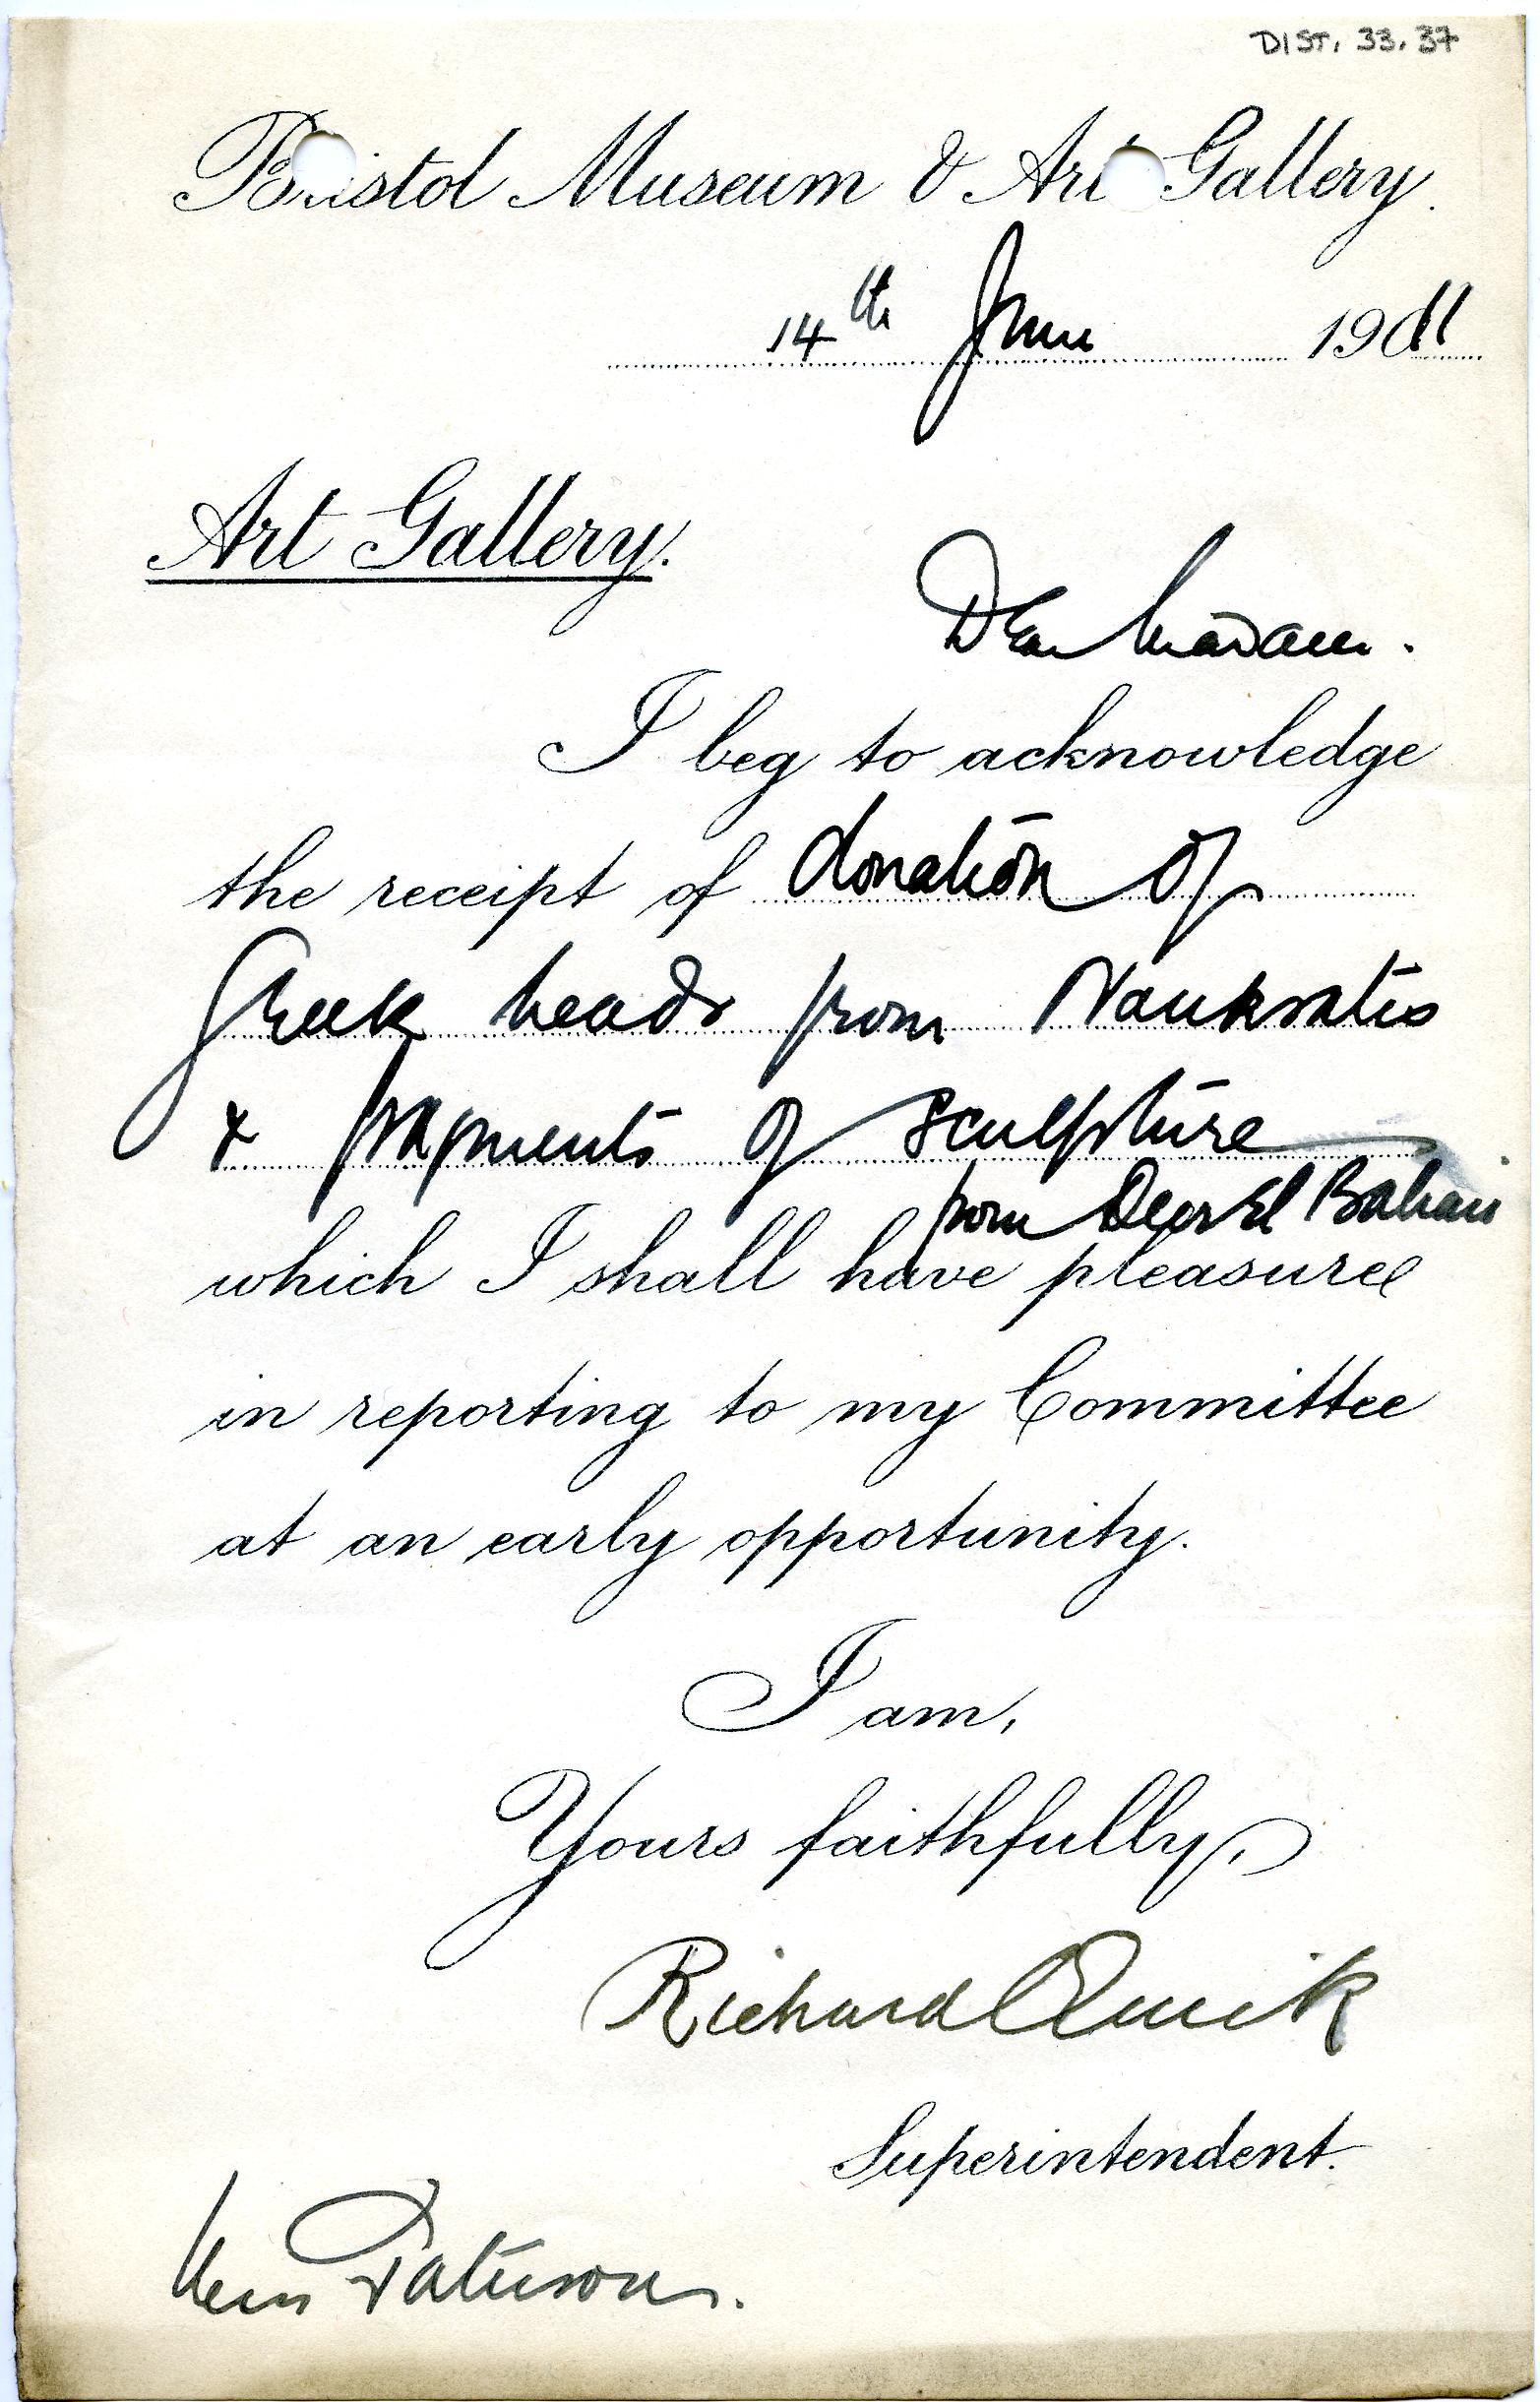 DIST. 33.37
Bristol Museum & Art Gallery.
14th June 1911
Art Gallery.
Dear Madam.
I beg to acknowledge
the receipt of donation of
Greek heads from Naukratis
& fragments of sculpture
from Deir El Bahari
which I shall have pleasure
in reporting to my Committee
at an early opportunity.
I am,
Yours faithfully,
Richard Quick
Superintendent.
Miss Paterson.